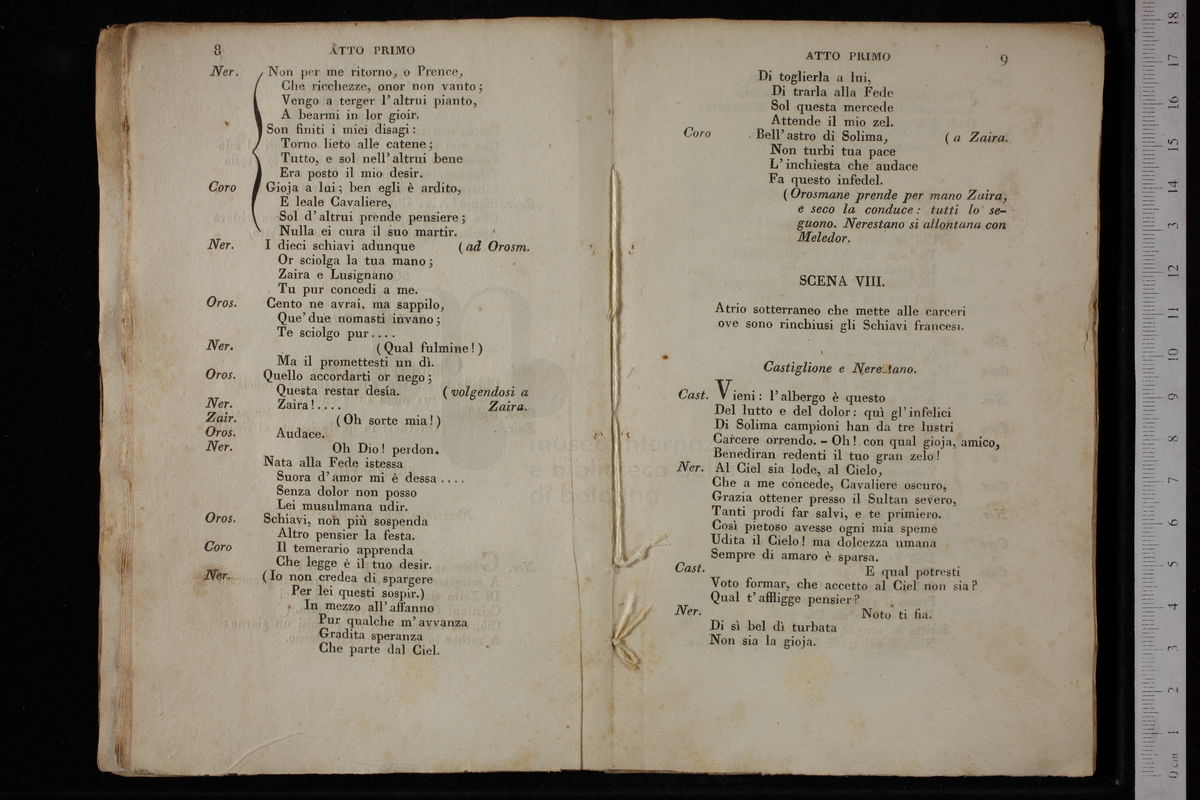 8 ATTO PRIMO
Ner. Non per me ritorno, o Prence,
Che ricchezze, onor non vanto;
Vengo a terger l'altrui pianto,
A bearmi in lor gioir.
Son finiti i miei disagi:
Torno lieto alle catene;
Tutto, e sol nell'altrui bene
Era posto il mio desir.
Coro Gioja a lui; ben egli è ardito,
E leale Cavaliere,
Sol d'altrui prende pensiere;
Nulla ei cura il suo martir.
Ner. I dieci schiavi adunque (ad Orosm.
Or sciolga la tua mano;
Zaira e Lusignano
Tu pur concedi a me.
Oros. Cento ne avrai, ma sappilo,
Que' due nomasti invano;
Te sciolgo pur....
Ner. (Qual fulmine!)
Ma il promettesti un dì.
Oros. Quello accordarti or nego;
Questa restar desía. (volgendosi a
Ner. Zaira!.... Zaira.
Zair. (Oh sorte mia!)
Oros. Audace.
Ner. Oh Dio! perdon.
Nata alla Fede istessa
Suora d'amor mi è dessa....
Senza dolor non posso
Lei musulmana udir.
Oros. Schiavi, non più sospenda
Altro pensier la festa.
Coro Il temerario apprenda
Che legge è il tuo desir.
Ner. (Io non credea di spargere
Per lei questi sospir.)
In mezzo all'affanno
Pur qualche m'avvanza
Gradita speranza
Che parte dal Ciel.
ATTO PRIMO 9
Di toglierla a lui,
Di trarla alla Fede
Sol questa mercede
Attende il mio zel.
Coro Bell'astro di Solima, (a Zaira.
Non turbi tua pace
L'inchiesta che audace
Fa questo infedel.
(Orosmane prende per mano Zaira,
e seco la conduce: tutti lo se-
guono. Nerestano si allontana con
Meledor.
SCENA VIII.
Atrio sotterraneo che mette alle carceri
ove sono rinchiusi gli Schiavi francesi.
Castiglione e Nerestano.
Cast. Vieni: l'albergo è questo
Del lutto e del dolor: quì gl'infelici
Di Solima campioni han da tre lustri
Carcere orrendo. - Oh! con qual gioja, amico,
Benediran redenti il tuo gran zelo!
Ner. Al Ciel sia lode, al Cielo,
Che a me concede, Cavaliere oscuro,
Grazia ottener presso il Sultan severo,
Tanti prodi far salvi, e te primiero.
Così pietoso avesse ogni mia speme
Udita il Cielo! ma dolcezza umana
Sempre di amaro è sparsa.
Cast. E qual potresti
Voto formar, che accetto al Ciel non sia?
Qual t'affligge pensier?
Ner. Noto ti fia.
Di sì bel dì turbata
Non sia la gioja.